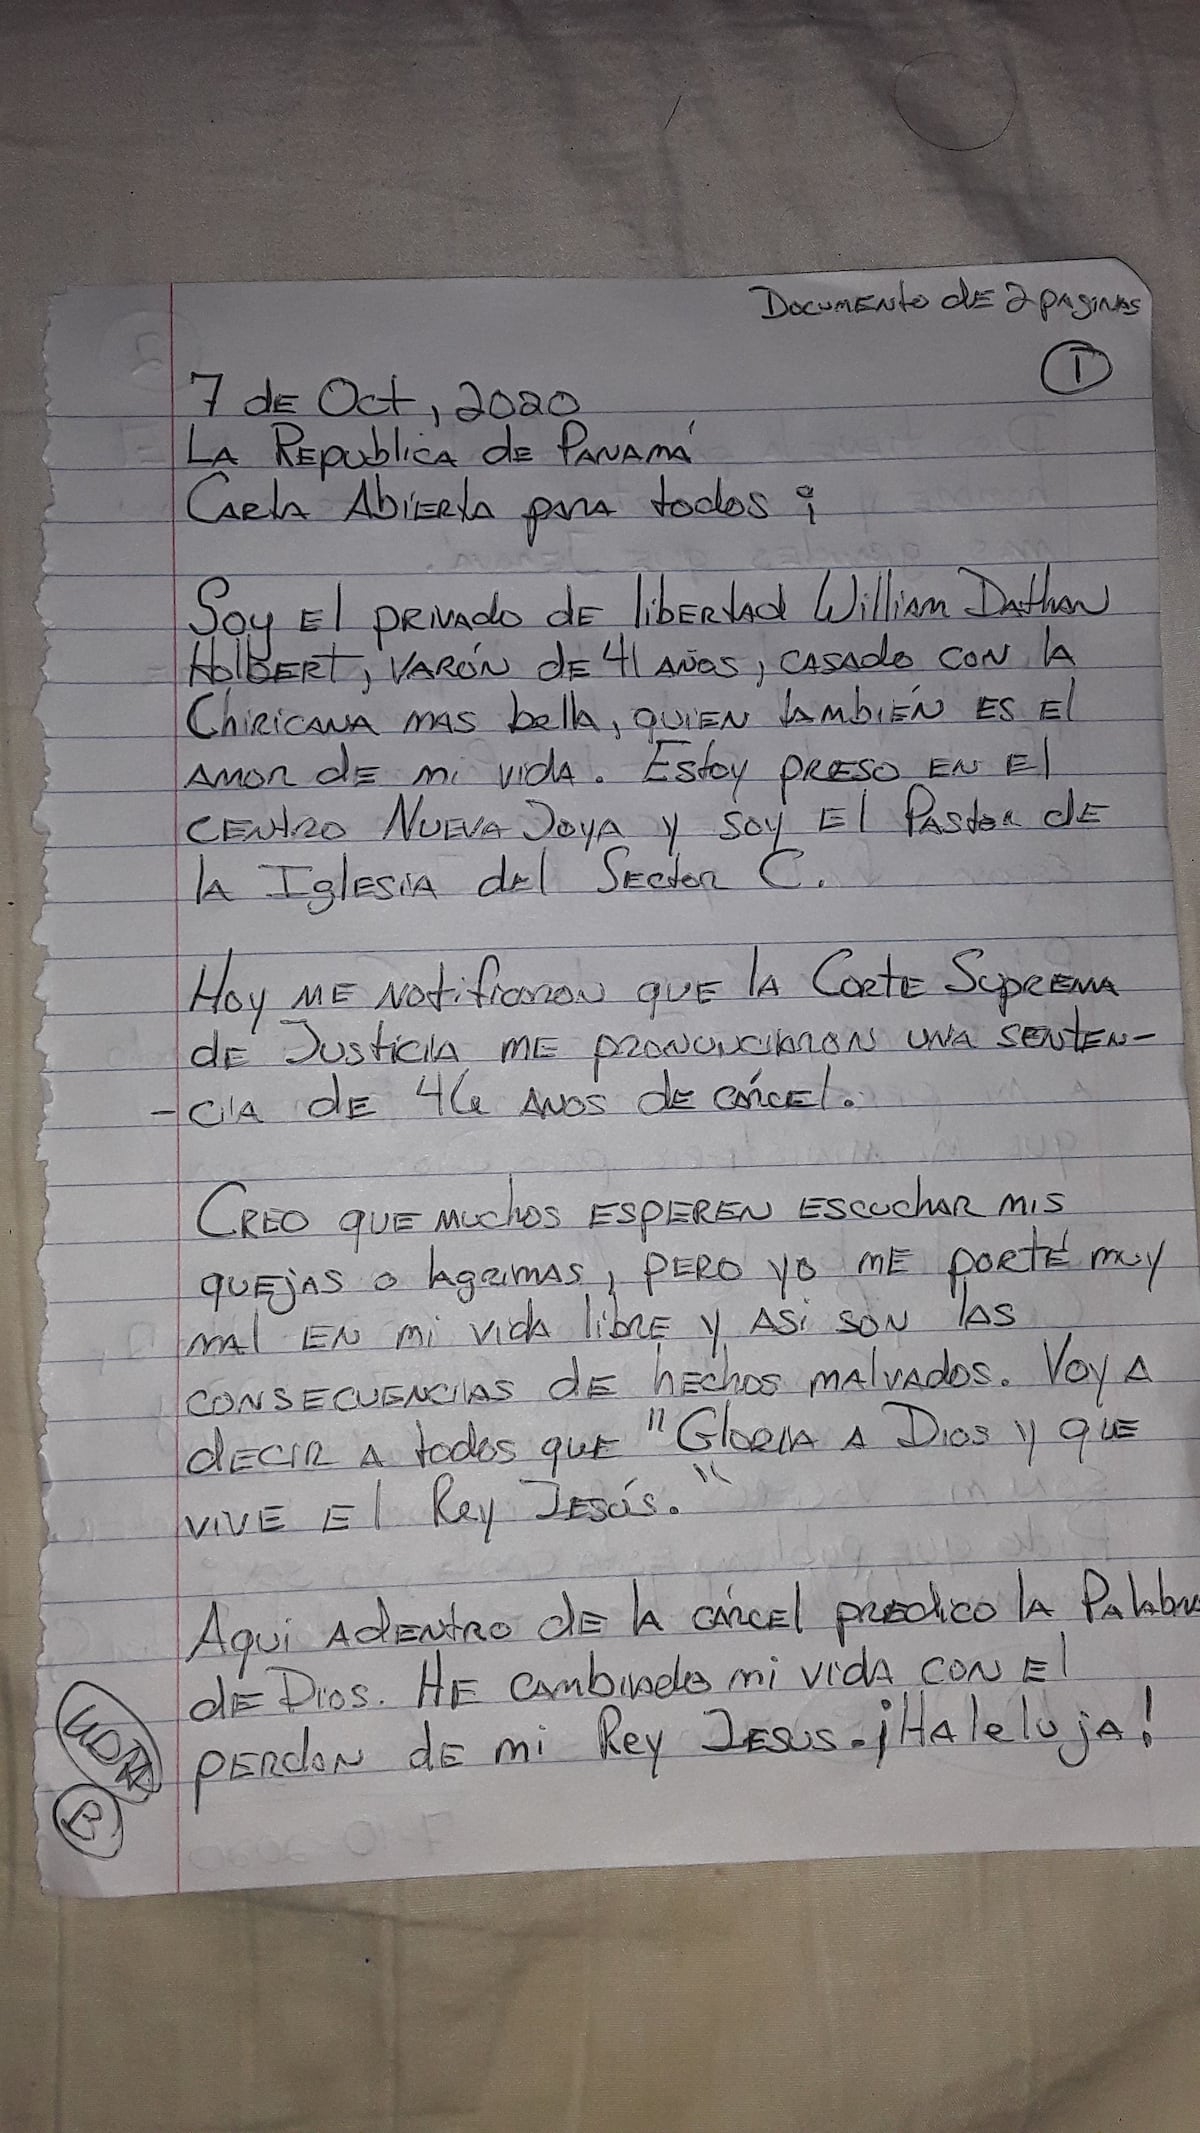 Documento de 2 paginas
1
7 de Oct, 2020
La Republica de Panamá
Carta Abierta para todos ;
Soy el privado de libertad William Dathan
Holbert, varón de 41 años, casado con la
Chiricana mas bella, quien también es el
amor de mi vida. Estoy preso en el
centro Nueva Joya y soy el Pastor de
la Iglesia del Sector C.
Hoy me notificaron que la Corte Suprema
de Justicia me pronunciaron una senten-
-cia de 46 anos de cárcel.
Creo que muchos esperen escuchar mis
quejas o lagrimas, pero yo me porté muy
mal en mi vida libre y asi son las
consecuencias de hechos malvados. Voy a
decir a todos que "Gloria a Dios y que
vive el Rey Jesús."
Aqui adentro de la cárcel predico la Palabra
de Dios. He cambiado mi vida con el
perdon de mi Rey Jesus. ¡Haleluja!
WDH
B